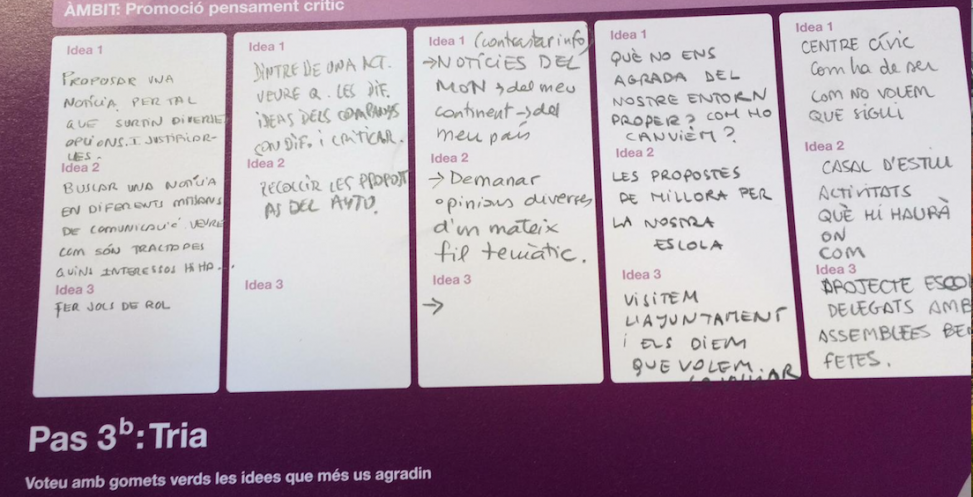 ÀMBIT: Promoció pensament crític
Idea 1
PROPOSAR UNA
NOTÍCIA PER TAL
QUE SURTIN DIVERSES
OPCIONS. I JUSTIFICAR-
LES.
Idea 2
BUSCAR UNA NOTÍCIA
EN DIFERENTS MITJANS
DE COMUNICACIÓ VEURE
COM SÓN TRACTADES
QUINS INTERESSOS HI HA...
Idea 3
FER JOCS DE ROL
Idea 1
DINTRE DE UNA ACT.
VEURE Q. LES DIF.
IDEAS DELS COMPANYS
SON DIF. I CRITICAR.
Idea 2
RECOLLIR LES PROPOST
AS DEL AYTO.
Idea 3
Idea 1 (contrastar info)
→ NOTÍCIES DEL
MÓN → del meu
continent → del
meu país
Idea 2
→ Demanar
opinions diverses
d'un mateix
fil temàtic.
Idea 3
→
Idea 1
QUÈ NO ENS
AGRADA DEL
NOSTRE ENTORN
PROPER? COM HO
CANVIEM?
Idea 2
LES PROPOSTES
DE MILLORA PER
LA NOSTRA
ESCOLA
Idea 3
VISITEM
L'AJUNTAMENT
I ELS DIEM
QUE VOLEM
Idea 1
CENTRE CÍVIC
Com ha de ser
Com NO VOLEM
QUE SIGUI
Idea 2
CASAL D'ESTIU
ACTIVITATS
QUÈ HI HAURÀ
ON
COM
Idea 3
PROJECTE ESCOL
DELEGATS AMB
ASSEMBLEES BEN
FETES.
Pas 3b: Tria
Voteu amb gomets verds les idees que més us agradin